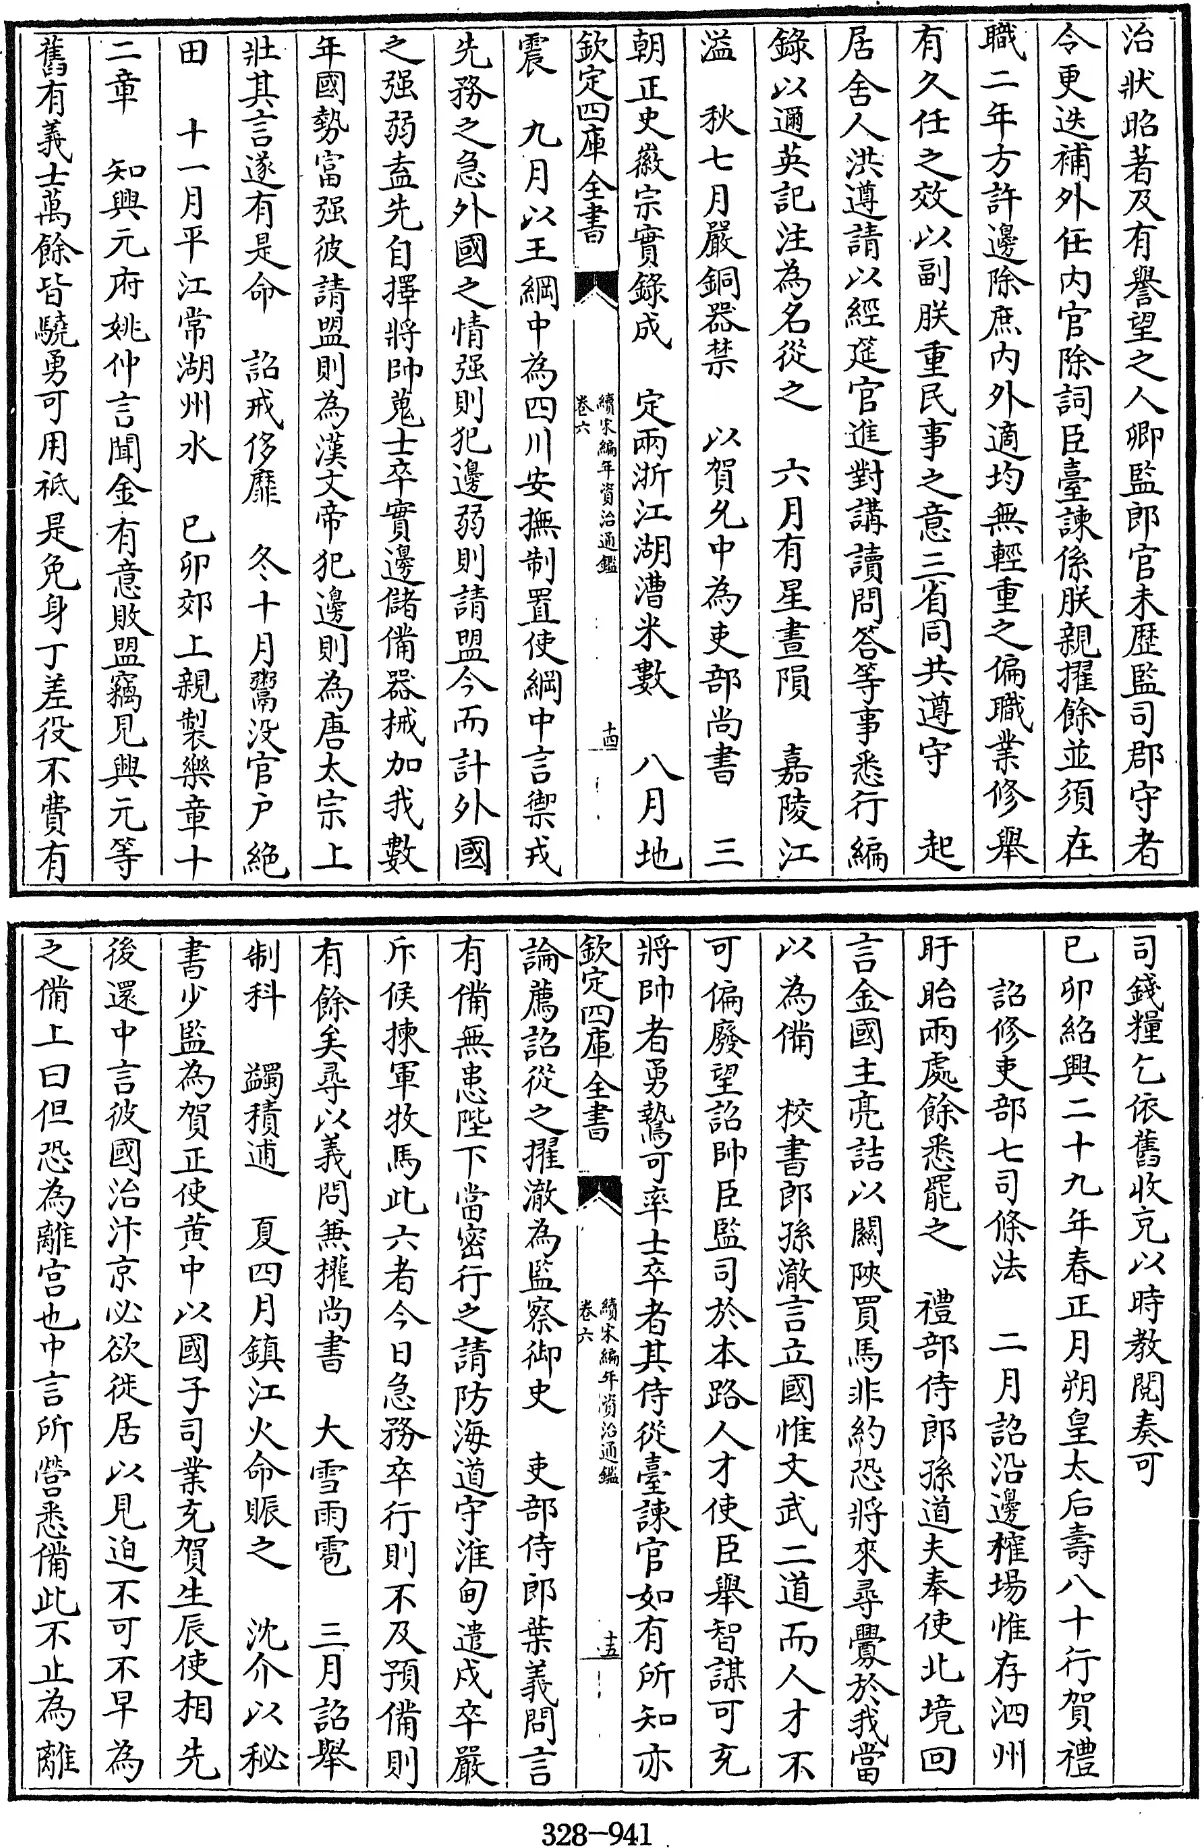 治狀昭著及有譽望之人卿監郎官未歴監司郡守者
令更迭補外任内官除詞臣臺諫係朕親擢餘並須在
職二年方許遷除庶内外適均無輕重之偏職業修舉
有久任之效以副朕重民事之意三省同共遵守　起
居舍人洪遵請以經筵官進對講讀問答等事悉行編
錄以邇英記注為名從之　六月有星晝隕　嘉陵江
溢　秋七月嚴銅器禁　以賀允中為吏部尚書　三
朝正史徽宗實錄成　定兩浙江湖漕米數　八月地
欽定四庫全書
續宋編年資治通鑑
卷六
十四
震　九月以王綱中為四川安撫制置使綱中言禦戎
先務之急外國之情强則犯邊弱則請盟今而計外國
之强弱盍先自擇將帥蒐士卒實邊儲備器械加我數
年國勢富强彼請盟則為漢文帝犯邊則為唐太宗上
壯其言遂有是命　詔戒侈靡　冬十月鬻没官户絶
田　十一月平江常湖州水　已卯郊上親製樂章十
二章　知興元府姚仲言聞金有意敗盟竊見興元等
舊有義士萬餘皆驍勇可用祇是免身丁差役不費有
司錢糧乞依舊收充以時教閱奏可
已卯紹興二十九年春正月朔皇太后壽八十行賀禮
詔修吏部七司條法　二月詔沿邊榷場惟存泗州
盱眙兩處餘悉罷之　禮部侍郎孫道夫奉使北境回
言金國主亮詰以關陜買馬非約恐將來尋釁於我當
以為備　校書郎孫澈言立國惟文武二道而人才不
可偏廢望詔帥臣監司於本路人才使臣舉智謀可充
將帥者勇鷙可率士卒者其侍從臺諫官如有所知亦
欽定四庫全書
續宋編年資治通鑑
卷六
十五
論薦詔從之擢澈為監察御史　吏部侍郎葉義問言
有備無患陛下當密行之請防海道守淮甸遣戍卒嚴
斥候揀軍牧馬此六者今日急務卒行則不及預備則
有餘矣尋以義問兼權尚書　大雪雨雹　三月詔舉
制科　蠲積逋　夏四月鎮江火命賑之　沈介以秘
書少監為賀正使黄中以國子司業充賀生辰使相先
後還中言彼國治汴京必欲徙居以見迫不可不早為
之備上曰但恐為離宮也中言所營悉備此不止為離
328-941